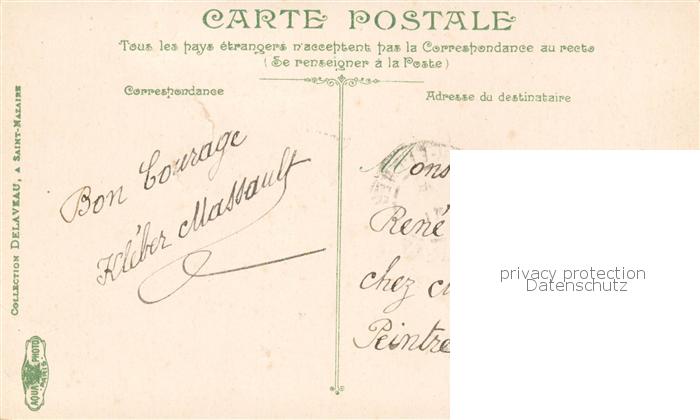 CARTE POSTALE
Tous les pays étrangers n'acceptent pas la Correspondance au recto
(Se renseigner à la Poste)
Correspondance
Adresse du destinataire
Bon Courage
Kléber Massault
Mons
René
chez
Peintre
privacy protection
Datenschutz
COLLECTION DELAVEAU, A SAINT-NAZAIRE
AQUA PHOTO
PARIS